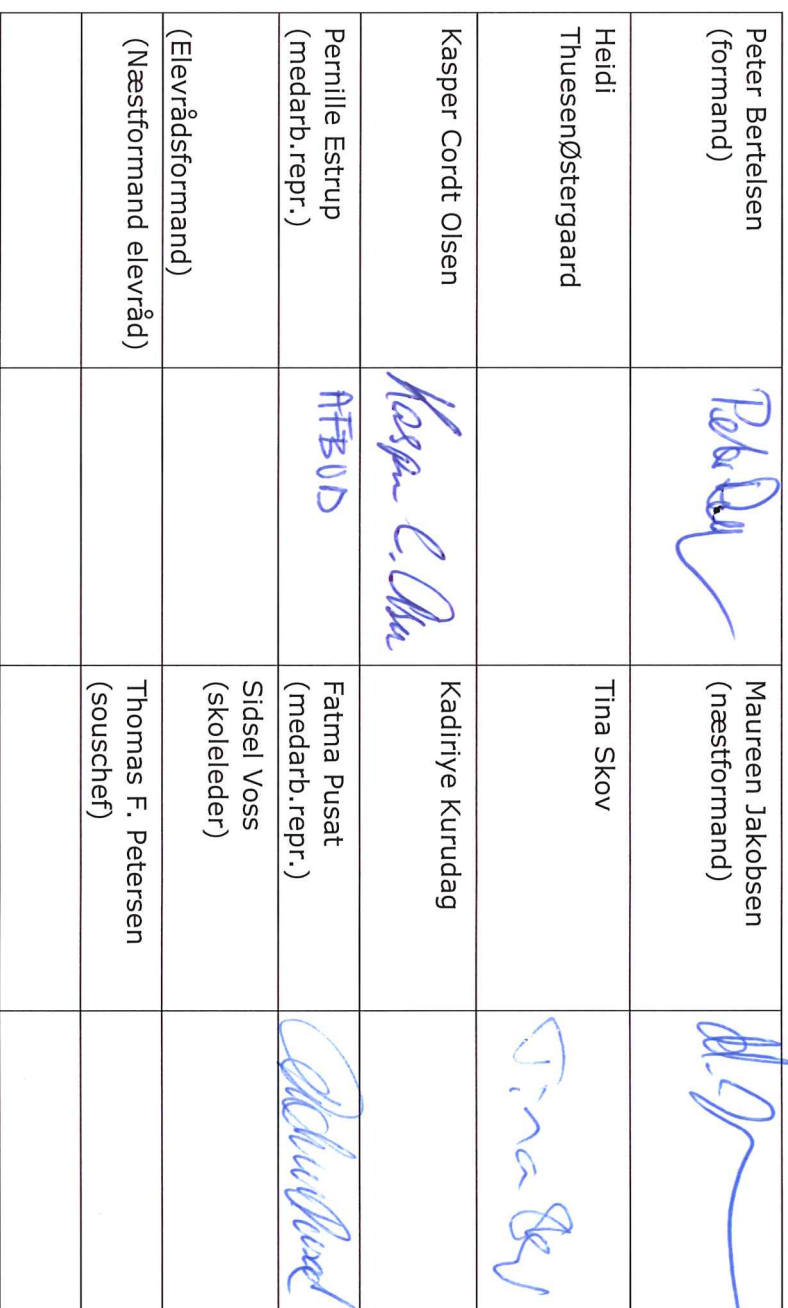 Peter Bertelsen
(formand)
Maureen Jakobsen
(næstformand)
Heidi
ThuesenØstergaard
Tina Skov
Tina Skov
Kasper Cordt Olsen
Kasper C. Olsen
Kadiriye Kurudag
Pernille Estrup
(medarb.repr.)
AFBUD
Fatma Pusat
(medarb.repr.)
(Elevrådsformand)
Sidsel Voss
(skoleleder)
(Næstformand elevråd)
Thomas F. Petersen
(souschef)